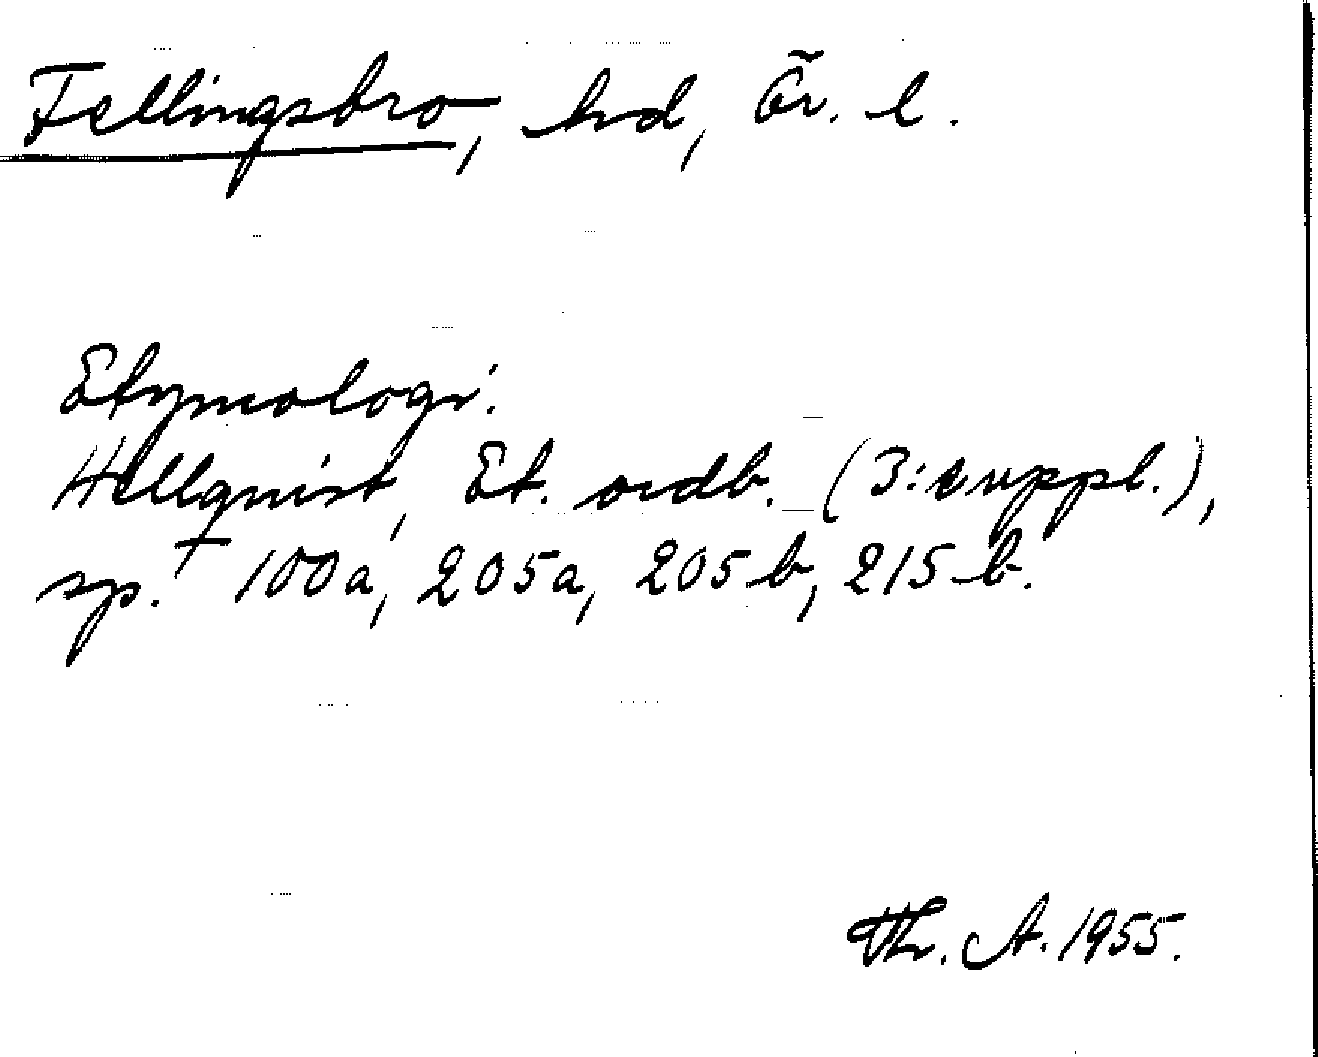 Fellingsbro, hd, Ör. l.
Etymologi:
Hellquist, Et. ordb. (3: suppl.),
sp. 100a, 205a, 205b, 215b.
Th. A. 1955.